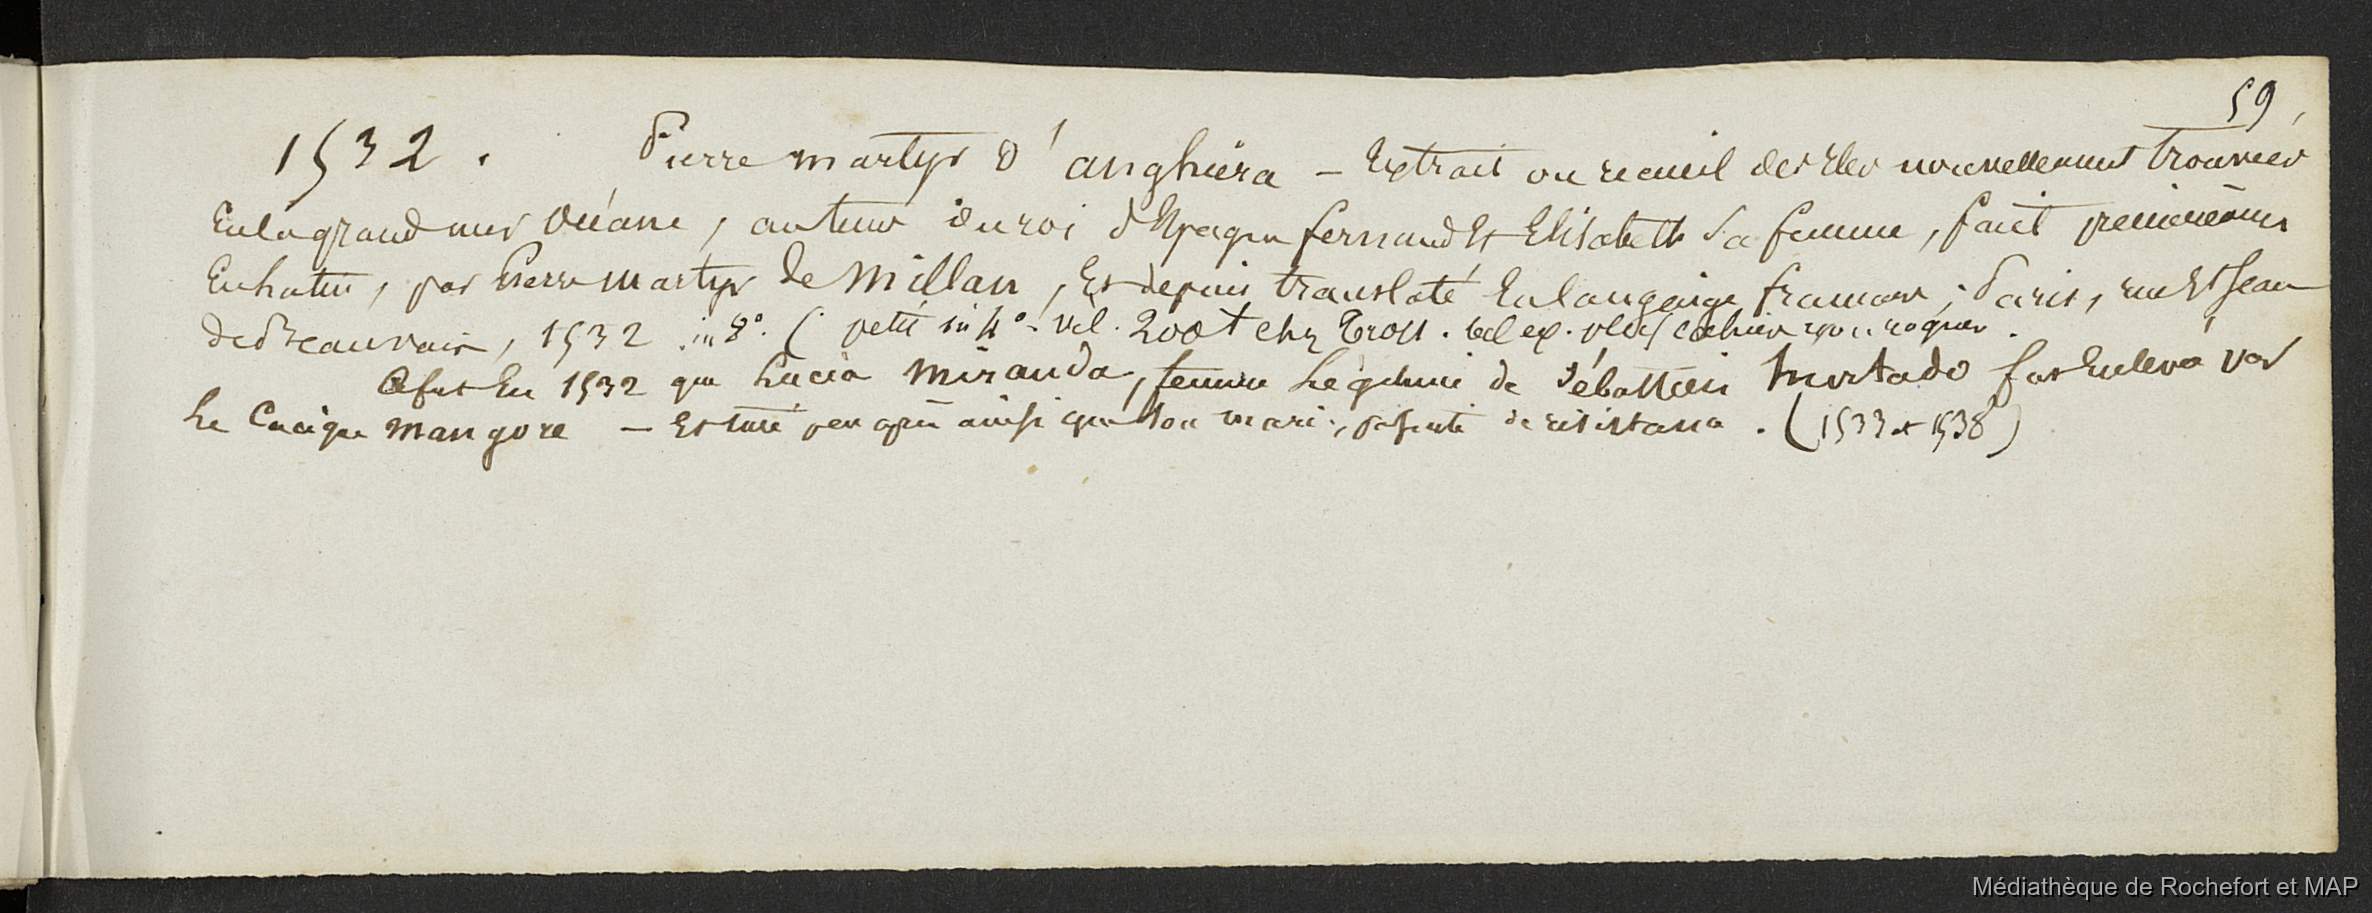 59
1532. Pierre martyr d'anghiera — Extrait ou recueil des Isles nouvellement trouvees
En la grand mer Océane, au temps du roi d'Espagne fernand Et Elisabeth sa femme, fait premierement
En latin, par Pierre martyr de Millan, Et depuis translaté En langaige francois; Paris, rue St Jean
de Beauvais, 1532 in 8°. ( petit in 4° - vél. 200 chez Tross. bel ex.
Ce fut En 1532 que Lucia Miranda, femme Légitime de Sébastien Hurtado fut Enlevé par
Le Cacique Mangore — Et tué peu après ainsi que son mari, de résistance. (1533 et 1538)
Médiathèque de Rochefort et MAP